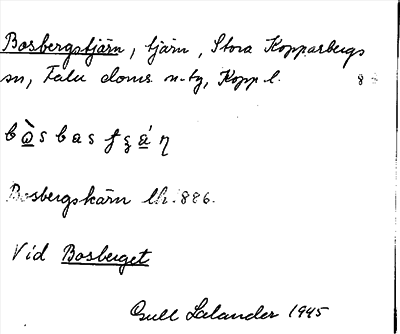 Bosbergstjärn, tjärn, Stora Kopparbergs
sn, Falu doms. n-tg, Kopp. l. 8
Bosbergskärn lh. 886.
Vid Bosberget
Gull Lalander 1945